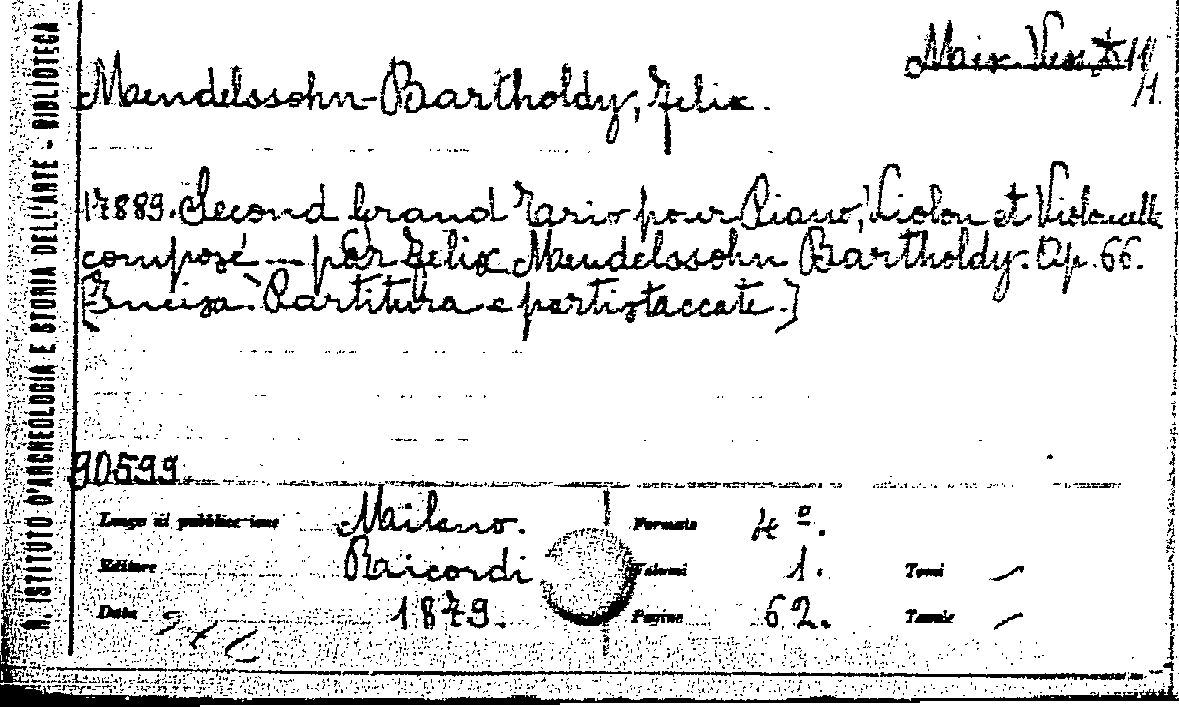 R. ISTITUTO D'ARCHEOLOGIA E STORIA DELL'ARTE - BIBLIOTECA
Mendelssohn-Bartholdy, Felix.
17889. Second Grand Trio pour Piano, Violon et Violoncelle
composé — par Felix Mendelssohn Bartholdy. Op. 66.
[Incisa. Partitura e parti staccate.]
90599.
Luogo di pubblicazione Milano. Formato 4º.
Editore Ricordi Volumi 1. Tomi —
Data 1879. Pagine 62. Tavole —